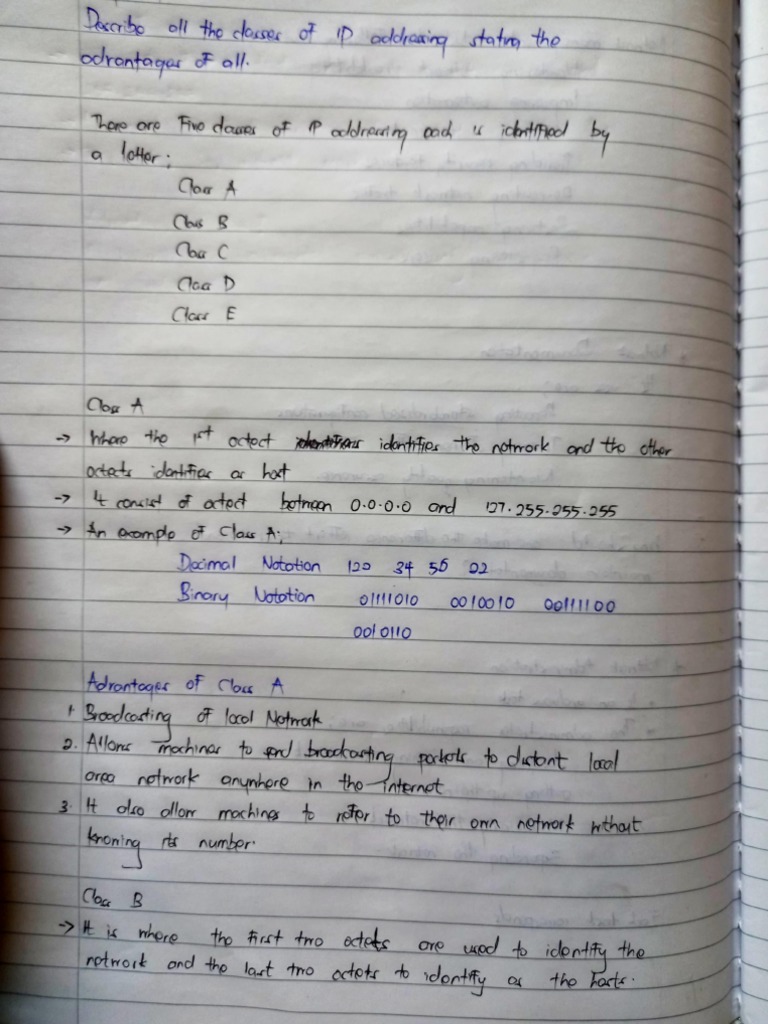 Describe all the classes of IP addressing stating the
advantages of all.
There are Five classes of IP addressing each is identified by
a letter;
Class A
Class B
Class C
Class D
Class E
Class A
→ Where the 1st octect identifies the network and the other
octects identifies as host
→ It consist of octect between 0.0.0.0 and 127.255.255.255
→ An example of Class A;
Decimal Notation 120 34 56 02
Binary Notation 01111010 0010010 00111100
0010110
Advantages of Class A
1. Broadcasting of local Network
2. Allows machines to send broadcasting packets to distant local
area network anywhere in the internet
3. It also allow machines to refer to their own network without
knowing its number.
Class B
→ It is where the first two octets are used to identify the
network and the last two octets to identify as the hosts.